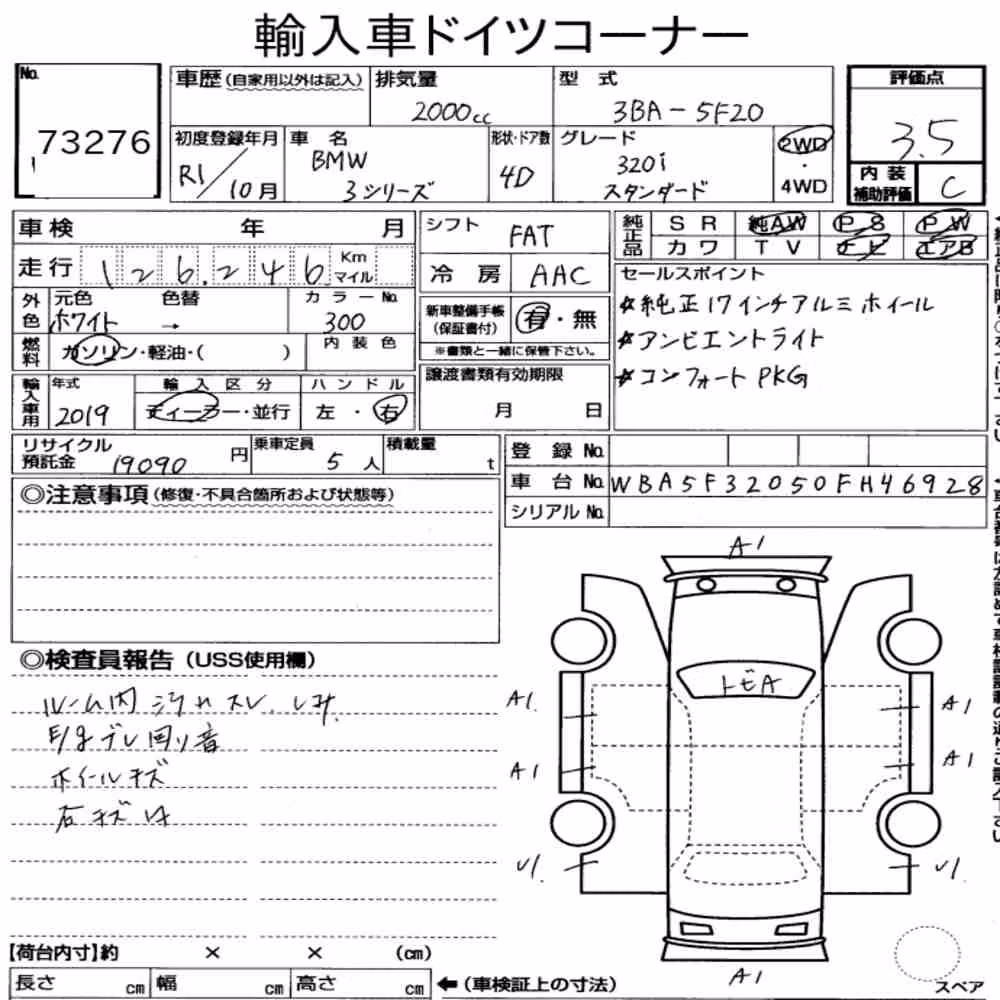 輸入車ドイツコーナー
No.
73276
車歴(自家用以外は記入)
排気量
2000cc
型 式
3BA-5F20
評価点
3.5
初度登録年月
R1/10月
車 名
BMW
3シリーズ
形状・ドア数
4D
グレード
320i
スタンダード
2WD
・
4WD
内 装
補助評価
C
車検 年 月
走行 126,246 Km
マイル
シフト FAT
冷 房 AAC
純正品
SR 純AW PS PW
カワ TV ナビ エアB
外色
元色 色替
ホワイト →
カラーNo.
300
新車整備手帳
(保証書付)
有・無
※書類と一緒に保管下さい。
セールスポイント
☆純正17インチアルミホイール
☆アンビエントライト
☆コンフォートPKG
燃料
ガソリン・軽油・( )
内 装 色
輸入車用
年式
2019
輸 入 区 分
ディーラー・並行
ハ ン ド ル
左・右
譲渡書類有効期限
月 日
リサイクル
預託金 19090 円
乗車定員
5 人
積載量
t
登 録 No.
車 台 No. WBA5F32050FH46928
シリアル No.
◎注意事項(修復・不具合箇所および状態等)
◎検査員報告(USS使用欄)
ルーム内 スレ.シミ.
ブレ回り音
ホイールキズ
石キズ
A1
トビA
A1 A1
A1 A1
A1
スペア
【荷台内寸】約 × × (cm)
長さ cm 幅 cm 高さ cm
←(車検証上の寸法)